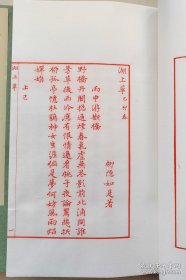 湖上草 己卯春
柳隱如是著
雨中游斷橋
野橋丹閣總通煙春氣虛無花影前北浦問誰
芳草後西泠應有恨情邊看桃子夜論鸚鵡折
柳孤亭憶杜鵑神女生涯倘是夢何妨風雨照
嬋娟
上巳
湖上草